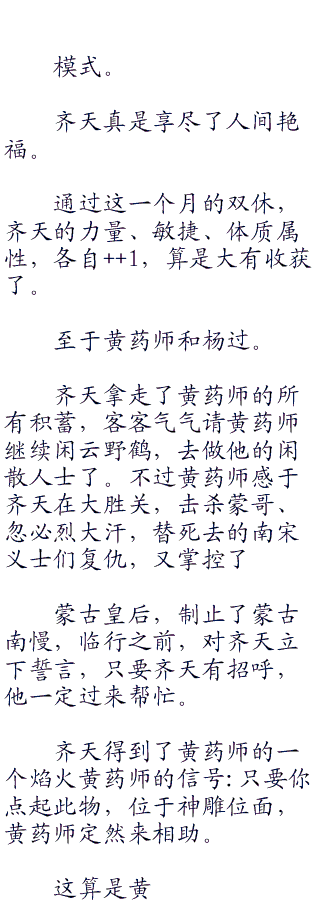 模式。
齐天真是享尽了人间艳
福。
通过这一个月的双休，
齐天的力量、敏捷、体质属
性，各自++1，算是大有收获
了。
至于黄药师和杨过。
齐天拿走了黄药师的所
有积蓄，客客气气请黄药师
继续闲云野鹤，去做他的闲
散人士了。不过黄药师感于
齐天在大胜关，击杀蒙哥、
忽必烈大汗，替死去的南宋
义士们复仇，又掌控了
蒙古皇后，制止了蒙古
南慢，临行之前，对齐天立
下誓言，只要齐天有招呼，
他一定过来帮忙。
齐天得到了黄药师的一
个焰火黄药师的信号：只要你
点起此物，位于神雕位面，
黄药师定然来相助。
这算是黄